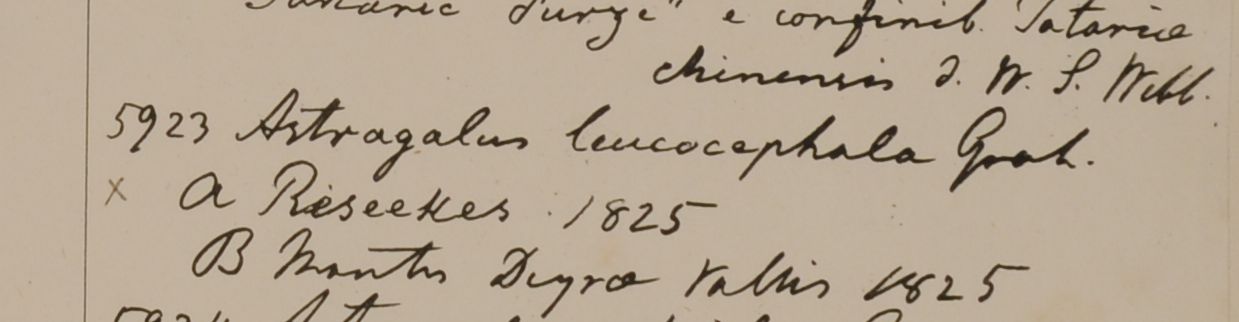 Tartaric Furze" e confinib. Tatariæ
chinensis d. W. S. Webb.
5923 Astragalus leucocephala Grah.
x a Reseekes 1825
B Montes Deyræ Vallis 1825